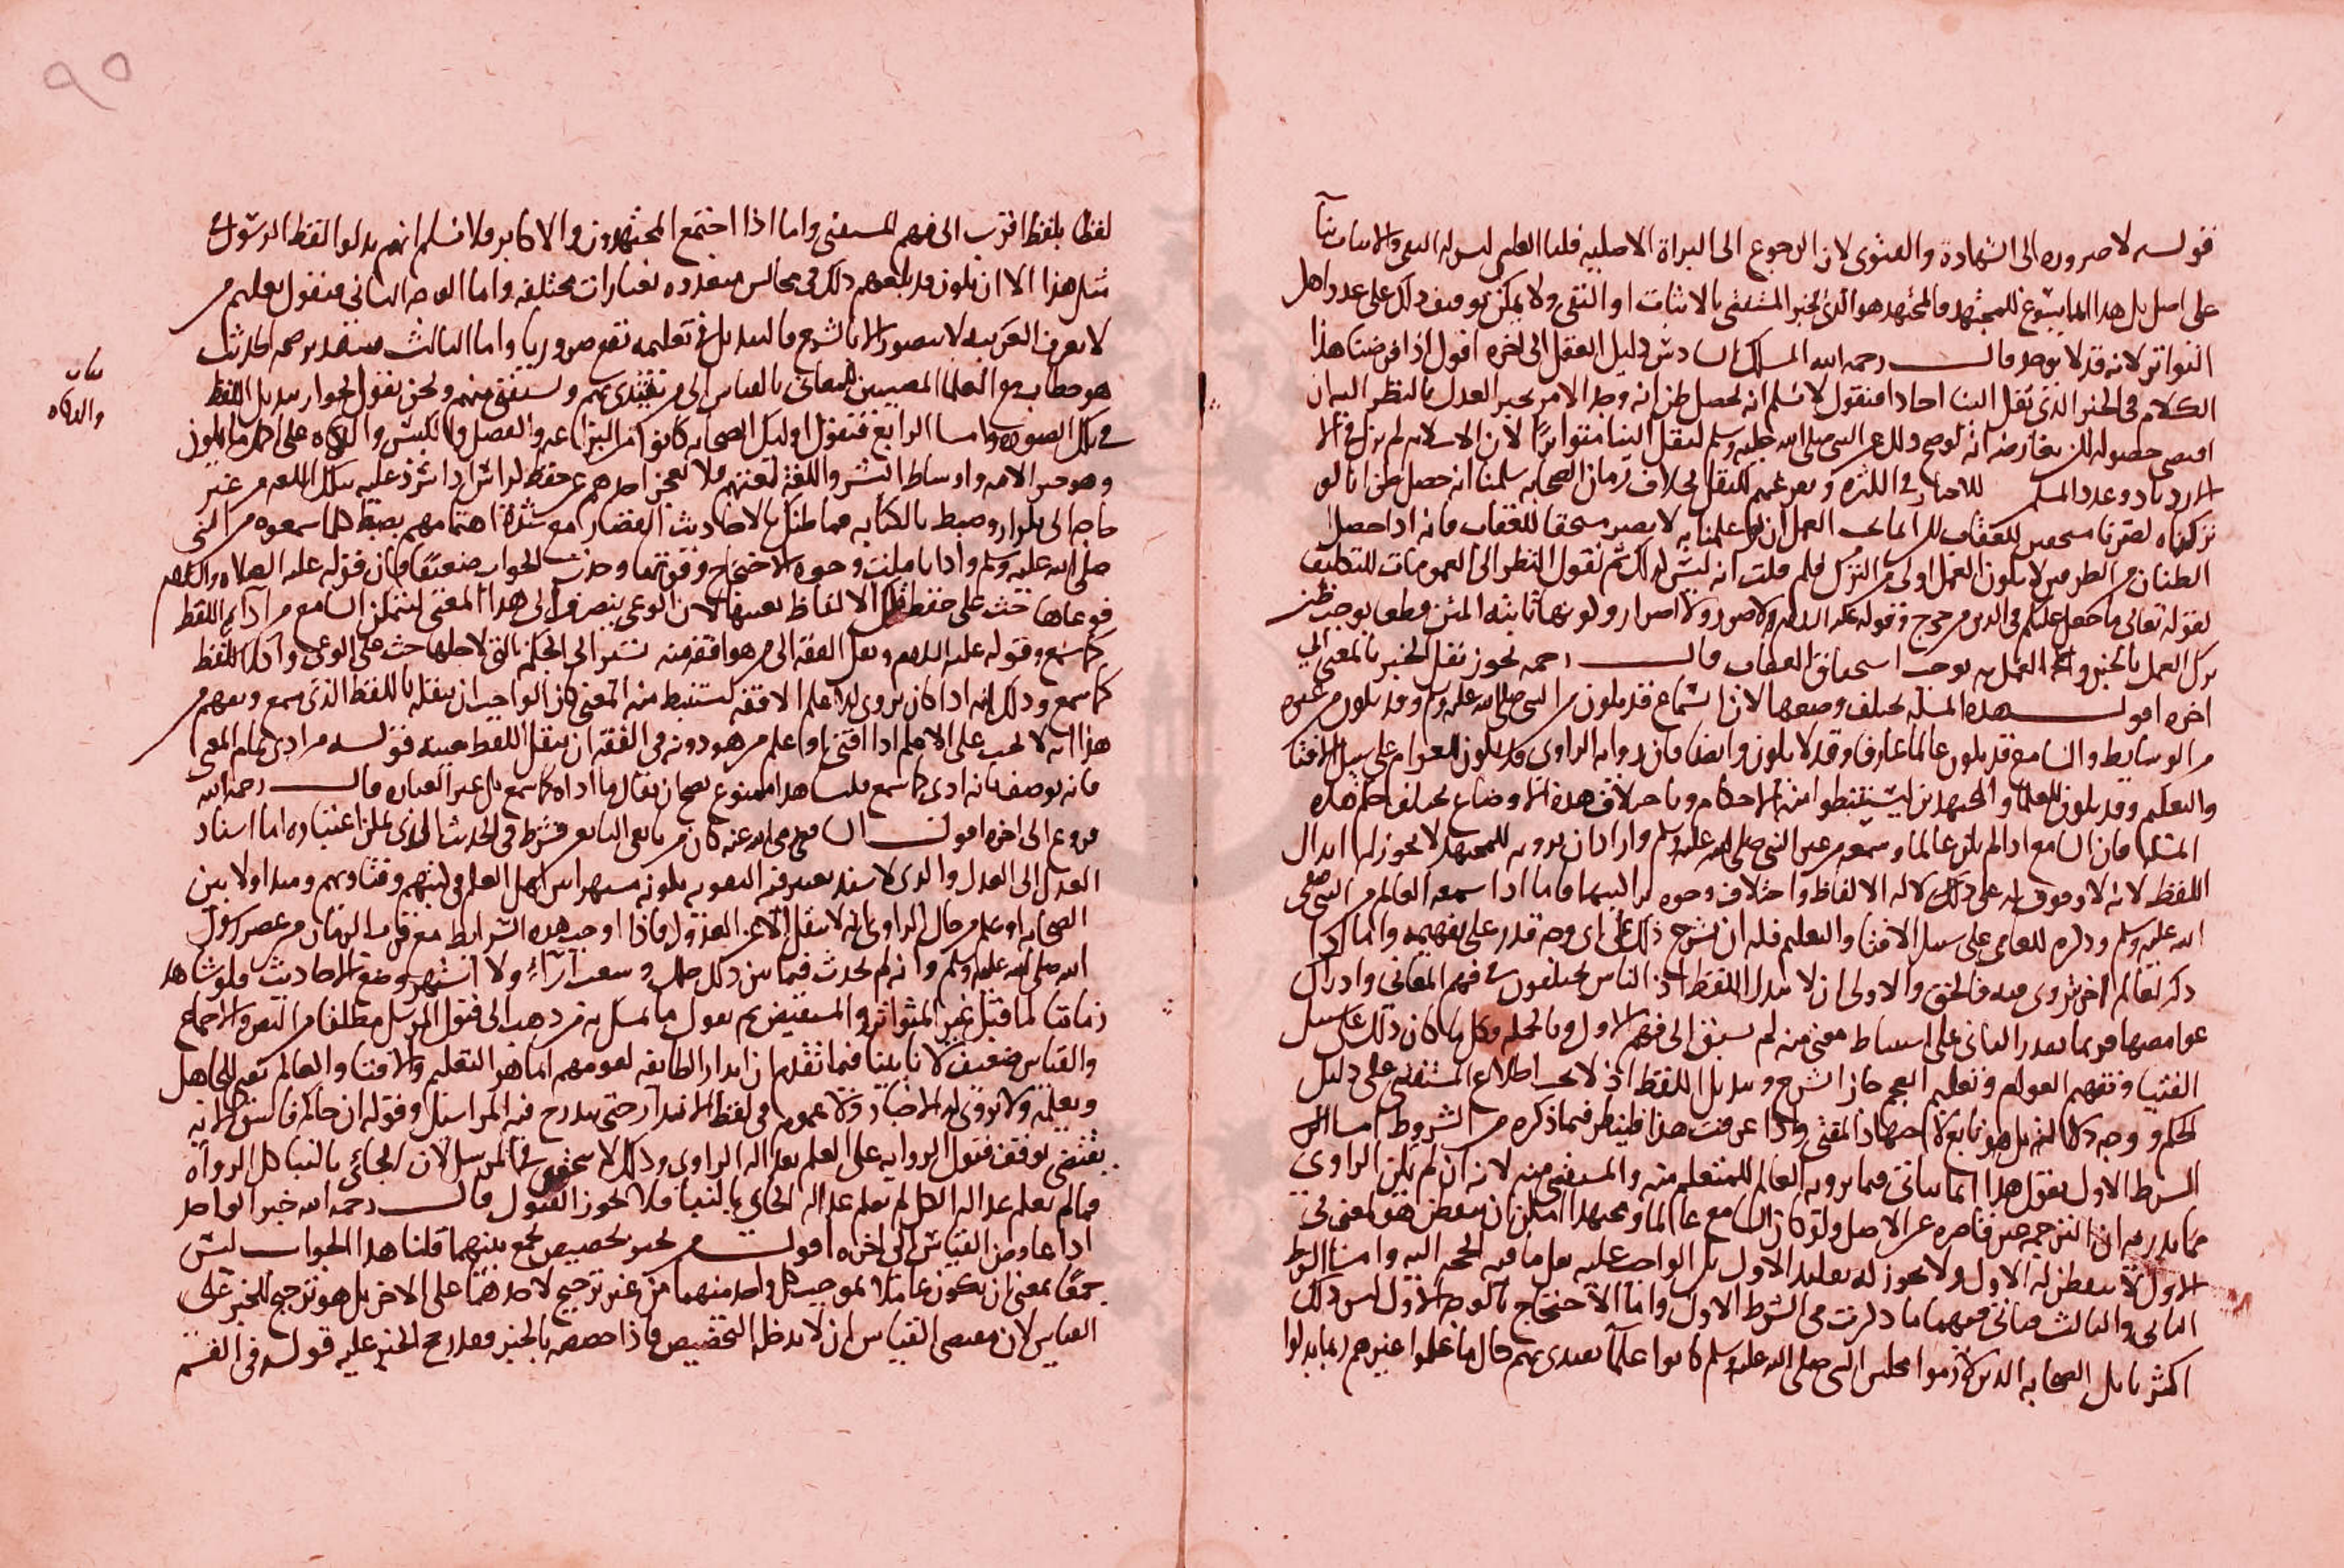 قوله لا ضروره الى الشهادة والفتوى لان الرجوع الى البراة الاصليه قلنا العلم ليس له النفى والاثبات بنآ
على اصل بل هذا انما يسوغ للمجتهد والمجتهد هو الذى يخبر المستفتى بالاثبات او النفى ولا يمكن توقيف ذلك على عدد اهل
التواتر لانه قد لا يوجد قال رحمه الله المسلك السادس دليل العقل الى اخره اقول اذا فرضنا هذا
الكلام فى الخبر الذى نقل الينا احادا فنقول لا نسلم انه يحصل ظن انه وجد الامر بخبر العدل بالنظر اليه ان
اقتضى حصوله لكن يعارضه انه لو صح ذلك عن النبى صلى الله عليه وسلم لنقل الينا متواترا لان الاسلام لم يزل فى الا
زدياد وعدد المسلم للاخبار فى الكثره و نقل بخلاف زمان الصحابه سلمنا انه حصل ظن انا لو
تركناه لصرنا مستحقين للعقاب العمل ان علمنا به لا يصير مستحقا للعقاب فانه اذا حصل
الظنان من الطرفين لا يكون العمل اولى من الترك فلم قلت انه ليس كذلك ثم نقول النظر الى العمومات للتكليف
لقوله تعالى ما جعل عليكم فى الدين من حرج وقوله عليه السلام لا ضرر ولا اضرار ولكونها ثابته المتن قطعا يوجب ظن
ترك العمل بالخبر و العمل به يوجب استحقاق العقاب قال رحمه يجوز نقل الخبر بالمعنى الى
اخره اقول هذه المسله يختلف وضعها لان السماع قد يكون من النبى صلى الله عليه وسلم وقد يكون من غيره
من الوسايط والسامع قد يكون عالما عارفا وقد لا يكون وايضا فان روايه الراوى قد يكون للعوام على سبيل الافتا
والتعلم وقد يكون للعلما والمجتهدين ليستنبطوا منه الاحكام وباختلاف هذه الاوضاع يختلف حكم هذه
المسله فان السامع اذا لم يكن عالما وسمع من غير النبى صلى الله عليه وسلم واراد ان يرويه للمجتهد لا يجوز له ابدال
اللفظ لانه لا وقوف له على دلاله الالفاظ واختلاف وجوه فاما اذا سمعه العالم من النبى صلى
الله عليه وسلم وذكره للعامى على سبيل الافتا والتعليم فله ان يشرح ذلك على اى وجه قدر على تفهيمه واما اذا
ذكر لعالم اخر يروى فيه فالحق والاولى ان لا يبدل اللفظ اذ الناس يختلفون فى فهم المعانى وادراك
غوامضها فربما يقدر الثانى على استنباط معنى منه لم يسبق الى فهم الاول وبالجمله فكل ما كان ذلك على سبيل
الفتيا وتفهيم العوام وتعليم العجم جاز الشرح وتبديل اللفظ اذ لا يجب اطلاع المستفتى على دليل
الحكم ووجه دلالته بل هو تابع لاجتهاد المفتى واذا عرفت هذا فلينظر فيما ذكره من الشروط اما
الشرط الاول نقول هذا انما يتاتى فيما يرويه العالم للمتعلم منه والمستفتى منه لانه ان لم يكن الراوى
مما يدريه ان الترجمه غير قاصره عن الاصل ولو كان السامع عالما ومجتهدا امكن ان يتفطن هو لمعنى فى
الاول لا يتفطن له الاول ولا يجوز له تقليد الاول بل الواجب عليه نقل ما فيه الحجه اليه واما الشرط
الثانى والثالث ففيهما ما ذكرت فى الشرط الاول واما الاحتجاج بالوجه الاول ليس ذلك
اكثر بل الصحابه الذين لازموا مجلس النبى صلى الله عليه وسلم كانوا علمآ يقتدى بهم حال ما علموا غيرهم ربما بدلوا
لفظا بلفظ اقرب الى فهم المستفتى واما اذا اجتمع المجتهدون والاكابر فلا نسلم انهم بدلوا لفظ الرسول
مثل هذا الا ان يكون قد بلغهم ذلك فى مجالس متعدده بعبارات مختلفه واما الوجه الثانى فنقول تعليم من
لا يعرف العربيه لا يتصور الا بالشرح فالتبديل فى تعليمه يقع ضروريا واما الثالث فبتقدير صحه الحديث
هو خطاب مع العلما المصيبين للمعانى بالقياس الى من يقتدى بهم ويستفتى منهم ونحن نقول بجواز تبديل اللفظ
فى تلك الصوره واما الرابع فنقول اوليك الصحابه كانوا من البراعه والفضل والكيس والذكاه على اكمل ما يكون
وهو خير الامه واوساط البشر واللغه لغتهم فلا يعجز احدهم عن حفظ اذا سرد عليه بتلك اللغه من غير
حاجه الى تكرار وضبط بالكتابه فما ظنك بالاحاديث القصار مع شدة اهتمامهم بضبط كلما سمعوه من النبى
صلى الله عليه وسلم واذا تاملت وجوه الاحتجاج وقوتها وجدت الجواب ضعيفا وان قوله عليه الصلاه والسلام
فوعاها حث على حفظ الالفاظ بعينها لان الوعى ينصرف الى هذا المعنى ليتمكن السامع من ادآء اللفظ
كما سمع وقوله عليه السلام ونقل الفقه الى من هو افقه منه تشير الى الحكمة التى لاجلها حث على الوعى واداء اللفظ
كما سمع وذلك انه اذا كان يروى الاعلم الافقه ليستنبط منه المعنى كان الواجب ان ينقله باللفظ الذى سمع ويفهم من
هذا انه لا يجب على الاعلم اذا افتى او اعلم من هو دونه فى الفقه ان ينقل اللفظ بعينه قوله من ادى تمام المعنى
فانه يوصف بانه ادى كما سمع قلت هذا ممنوع يصح ان يقال ما اداه كما سمع بل غير العباره قال رحمه الله
فروع الى اخره اقول الشافعى رضى الله عنه كان من تابعى التابعين فشرط فى الحديث الذى يمكن اعتباره اما اسناد
العدل الى العدل والذى لا سند يعتبر فيه التقويه بكونه مشهرا بين اهل العلم فى كتبهم وفتاويهم ومتداولا بين
الصحابه او علم من حال الراوى انه لا ينقل الا عن العدول فاذا اوجب هذه الشرايط مع قرب الزمان من عصر رسول
الله صلى الله عليه وسلم وانه لم يحدث فيما بين ذلك ملل وشعب آراء ولا اشتهر وضع الاحاديث فلو شاهد
زماننا لما قبل غير المتواتر والمستفيض ثم نقول ما تمسك به من ذهب الى قبول المرسل مطلقا من النص والاجماع
والقياس ضعيف لانا بينا فيما تقدم ان انذار الطايفه لقومهم انما هو التعليم والافتا والعالم يفتى الجاهل
ويعلمه ولا يروى له الاخبار ولا عموم فى لفظ الانذار حتى يندرج فيه المراسيل وقوله ان جاكم فاسق الايه
يقتضى توقف قبول الروايه على العلم بعداله الراوى وذلك لا يتحقق فى المرسل لان الجائى بالنبا كل الرواة
فما لم يعلم عداله الكل لم يعلم عداله الجائى بالنبا فلا يجوز القبول قال رحمه الله خبر الواحد
اذا عارض القياس الى اخره اقول من يجيز تخصيص يجمع بينهما قلنا هذا الجواب ليس
جمعا بمعنى ان يكون عاملا بموجب كل واحد منهما من غير ترجيح لاحدهما على الاخر بل هو ترجيح للخبر على
القياس لان مقتضى القياس ان لا يدخله التخصيص فاذا خصصه بالخبر فقد رجح الخبر عليه قوله فى القسم
والذكاه
٩٠